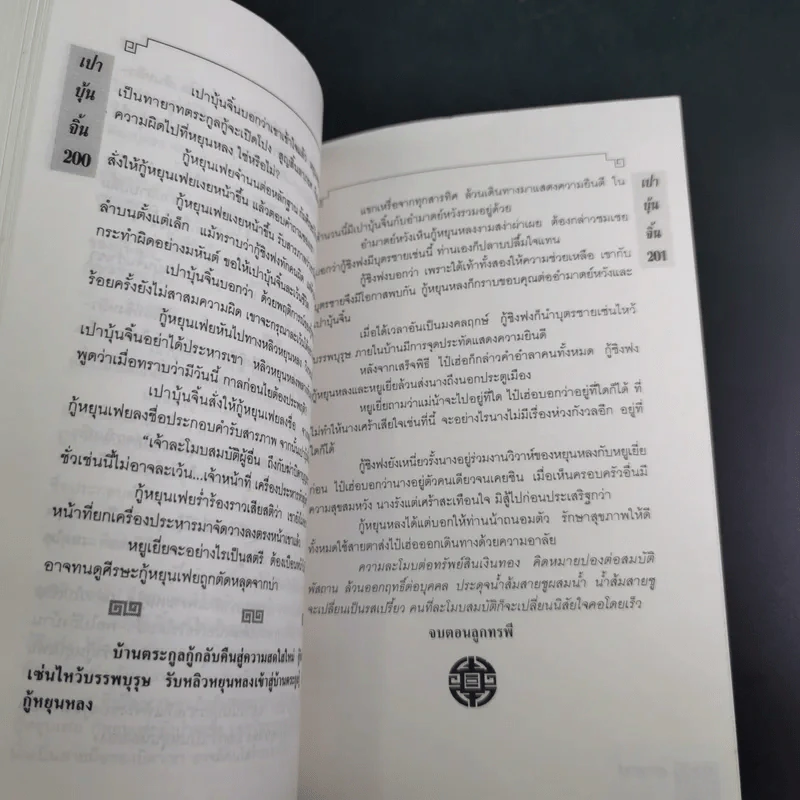 เปา
บุ้น
จิ้น
200
เปาบุ้นจิ้นบอกว่าเขาเข้าใจแล้ว
เป็นทายาทตระกูลกู้จะเปิดโปง สูญสิ้น
ความผิดไปที่หยุนหลง ใช่หรือไม่?
กู้หยุนเฟยจำนนต่อหลักฐาน
สั่งให้กู้หยุนเฟยเงยหน้าขึ้น แล้วตอบคำถาม
กู้หยุนเฟยเงยหน้าขึ้น รับสารภาพว่า
ลำบนตั้งแต่เล็ก แม้ทราบว่ากู้ชิงฟงทักคนผิด
กระทำผิดอย่างมหันต์ ขอให้เปาบุ้นจิ้นละเว้นชีวิต
เปาบุ้นจิ้นบอกว่า ด้วยพฤติการณ์
ร้อยครั้งยังไม่สาสมความผิด เขาจะกรุณาละเว้นได้
กู้หยุนเฟยหันไปทางหลิวหยุนหลง
เปาบุ้นจิ้นอย่าได้ประหารเขา หลิวหยุนหลง
พูดว่าเมื่อทราบว่ามีวันนี้ กาลก่อนไยต้องประพฤติ
เปาบุ้นจิ้นสั่งให้กู้หยุนเฟยลงชื่อ
กู้หยุนเฟยลงชื่อประกอบคำรับสารภาพ จากนั้น
“เจ้าละโมบสมบัติผู้อื่น ถึงกับฆ่าปิดปาก
ชั่วเช่นนี้ไม่อาจละเว้น...เจ้าหน้าที่ เครื่องประหาร
กู้หยุนเฟยร่ำร้องราวเสียสติว่า เขายัง
หน้าที่ยกเครื่องประหารมาจัดวางลงตรงหน้าเขาแล้ว
หยูเยี่ยจะอย่างไรเป็นสตรี ต้องเบือนหน้า
อาจทนดูศีรษะกู้หยุนเฟยถูกตัดหลุดจากบ่า
บ้านตระกูลกู้กลับคืนสู่ความสดใสใหม่
เซ่นไหว้บรรพบุรุษ รับหลิวหยุนหลงเข้าสู่บ้านตระกูล
กู้หยุนหลง
เปา
บุ้น
จิ้น
201
แขกเหรื่อจากทุกสารทิศ ล้วนเดินทางมาแสดงความยินดี ใน
จำนวนนี้มีเปาบุ้นจิ้นกับอำมาตย์หวังรวมอยู่ด้วย
อำมาตย์หวังเห็นกู้หยุนหลงงามสง่าผ่าเผย ต้องกล่าวชมเชย
บอกว่ากู้ชิงฟงมีบุตรชายเช่นนี้ ท่านเองก็ปลาบปลื้มใจแทน
กู้ชิงฟงบอกว่า เพราะได้เท้าทั้งสองให้ความช่วยเหลือ เขากับ
บุตรชายจึงมีโอกาสพบกัน กู้หยุนหลงก็กราบขอบคุณต่ออำมาตย์หวังและ
เปาบุ้นจิ้น
เมื่อได้เวลาอันเป็นมงคลฤกษ์ กู้ชิงฟงก็นำบุตรชายเซ่นไหว้
บรรพบุรุษ ภายในบ้านมีการจุดประทัดแสดงความยินดี
หลังจากเสร็จพิธี ไป๋เฮ่อก็กล่าวคำอำลาคนทั้งหมด กู้ชิงฟง
กู้หยุนหลงและหยูเยี่ยล้วนส่งนางถึงนอกประตูเมือง
หยูเยี่ยถามว่าแม่น้าจะไปอยู่ที่ใด ไป๋เฮ่อบอกว่าอยู่ที่ใดก็ได้ ที่
ไม่ทำให้นางเศร้าเสียใจเช่นที่นี่ จะอย่างไรนางไม่มีเรื่องห่วงกังวลอีก อยู่ที่
ใดก็ได้
กู้ชิงฟงยังเหนี่ยวรั้งนางอยู่ร่วมงานวิวาห์ของหยุนหลงกับหยูเยี่ย
ก่อน ไป๋เฮ่อบอกว่านางอยู่ตัวคนเดียวจนเคยชิน เมื่อเห็นครอบครัวอื่นมี
ความสุขสมหวัง นางรังแต่เศร้าสะเทือนใจ มิสู้ไปก่อนประเสริฐกว่า
กู้หยุนหลงได้แต่บอกให้ท่านน้าถนอมตัว รักษาสุขภาพให้ดี
ทั้งหมดใช้สายตาส่งไป๋เฮ่อออกเดินทางด้วยความอาลัย
ความละโมบต่อทรัพย์สินเงินทอง คิดหมายปองต่อสมบัติ
พัสถาน ล้วนออกฤทธิ์ต่อบุคคล ประดุจน้ำส้มสายชูผสมน้ำ น้ำส้มสายชู
จะเปลี่ยนเป็นรสเปรี้ยว คนที่ละโมบสมบัติก็จะเปลี่ยนนิสัยใจคอโดยเร็ว
จบตอนลูกทรพี